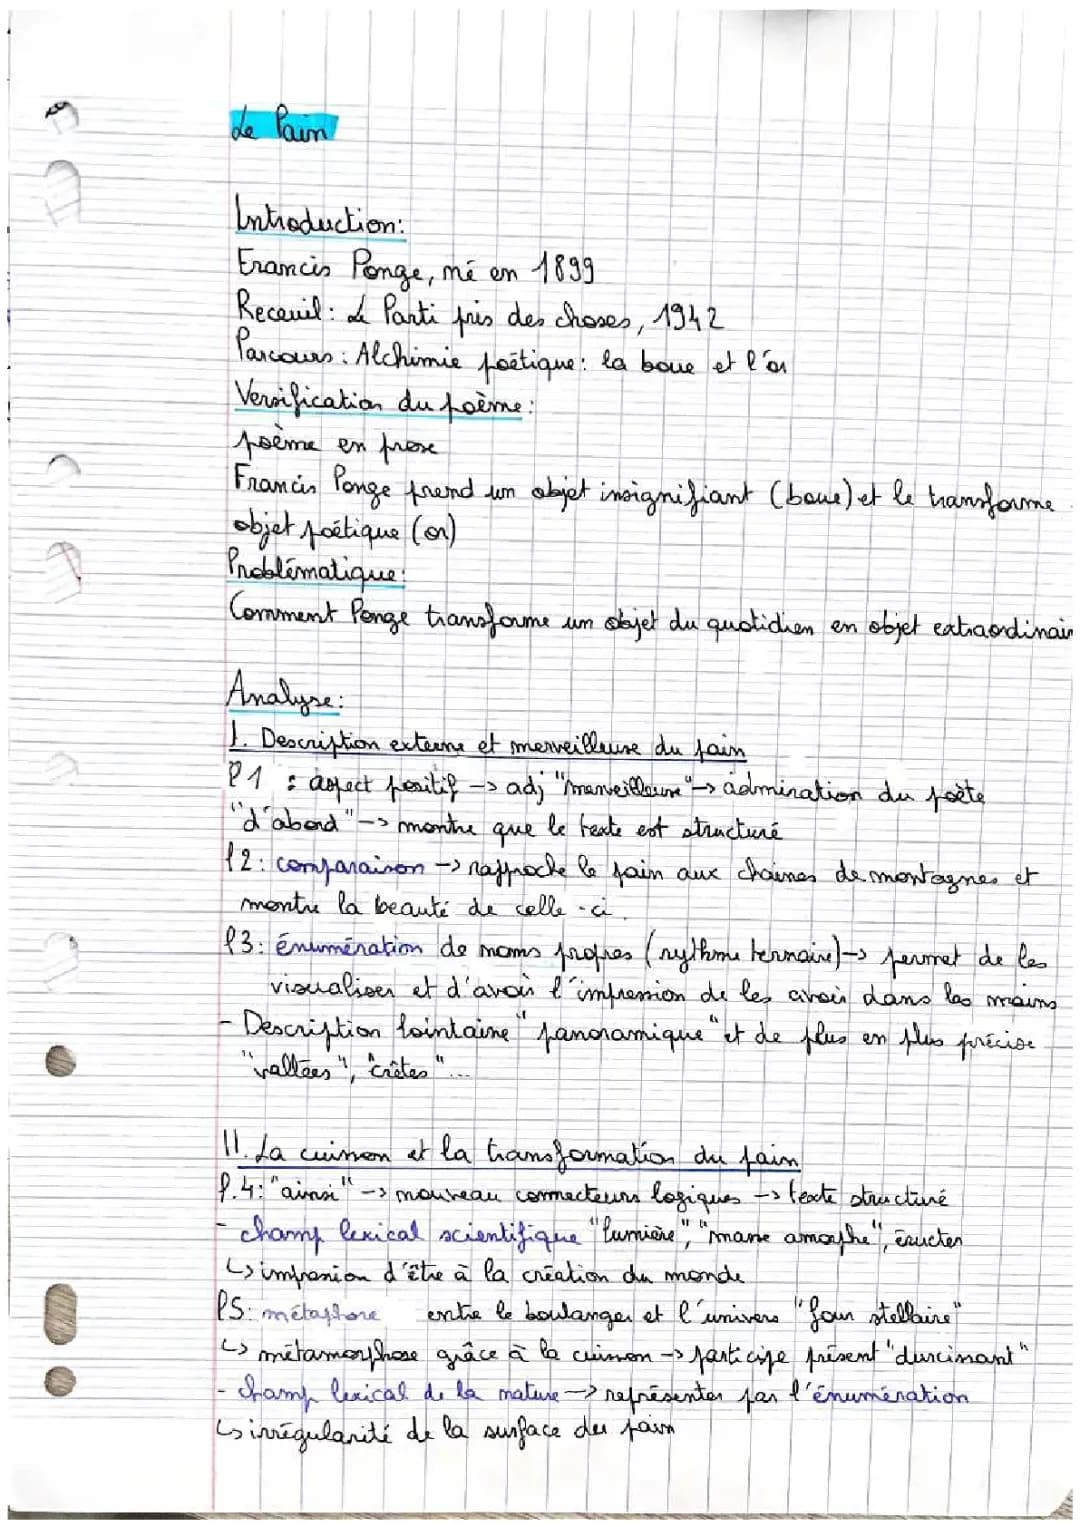 Le Pain
Introduction:
Francis Ponge, né en 1899
Receuil: Le Parti pris des choses, 1942
Parcours: Alchimie poétique: la boue et l'or
Versification du poème:
poème en prose
Francis Ponge prend un objet insignifiant (boue) et le transforme
objet poétique (or)
Problématique:
Comment Ponge transforme un objet du quotidien en objet extraordinair
Analyse:
I. Description externe et merveilleuse du pain
l1 : aspect positif -> adj "merveilleuse" -> admiration du poète
"d'abord" -> montre que le texte est structuré
l2: comparaison -> rapproche le pain aux chaines de montagnes et
montre la beauté de celle-ci.
l3: énumération de noms propres (rythme ternaire) -> permet de les
visualiser et d'avoir l'impression de les avoir dans les mains
- Description lointaine "panoramique" et de plus en plus précise
"vallées", "crêtes"...
II. La cuisson et la transformation du pain
l.4: "ainsi" -> nouveau connecteurs logiques -> texte structuré
- champ lexical scientifique "lumière", "masse amorphe", éructer
↳ impression d'être à la création du monde
l5: métaphore entre le boulanger et l'univers "four stellaire"
↳ métamorphose grâce à la cuisson -> participe présent "durcissant"
- champ lexical de la nature -> représenter par l'énumération
↳ irrégularité de la surface du pain